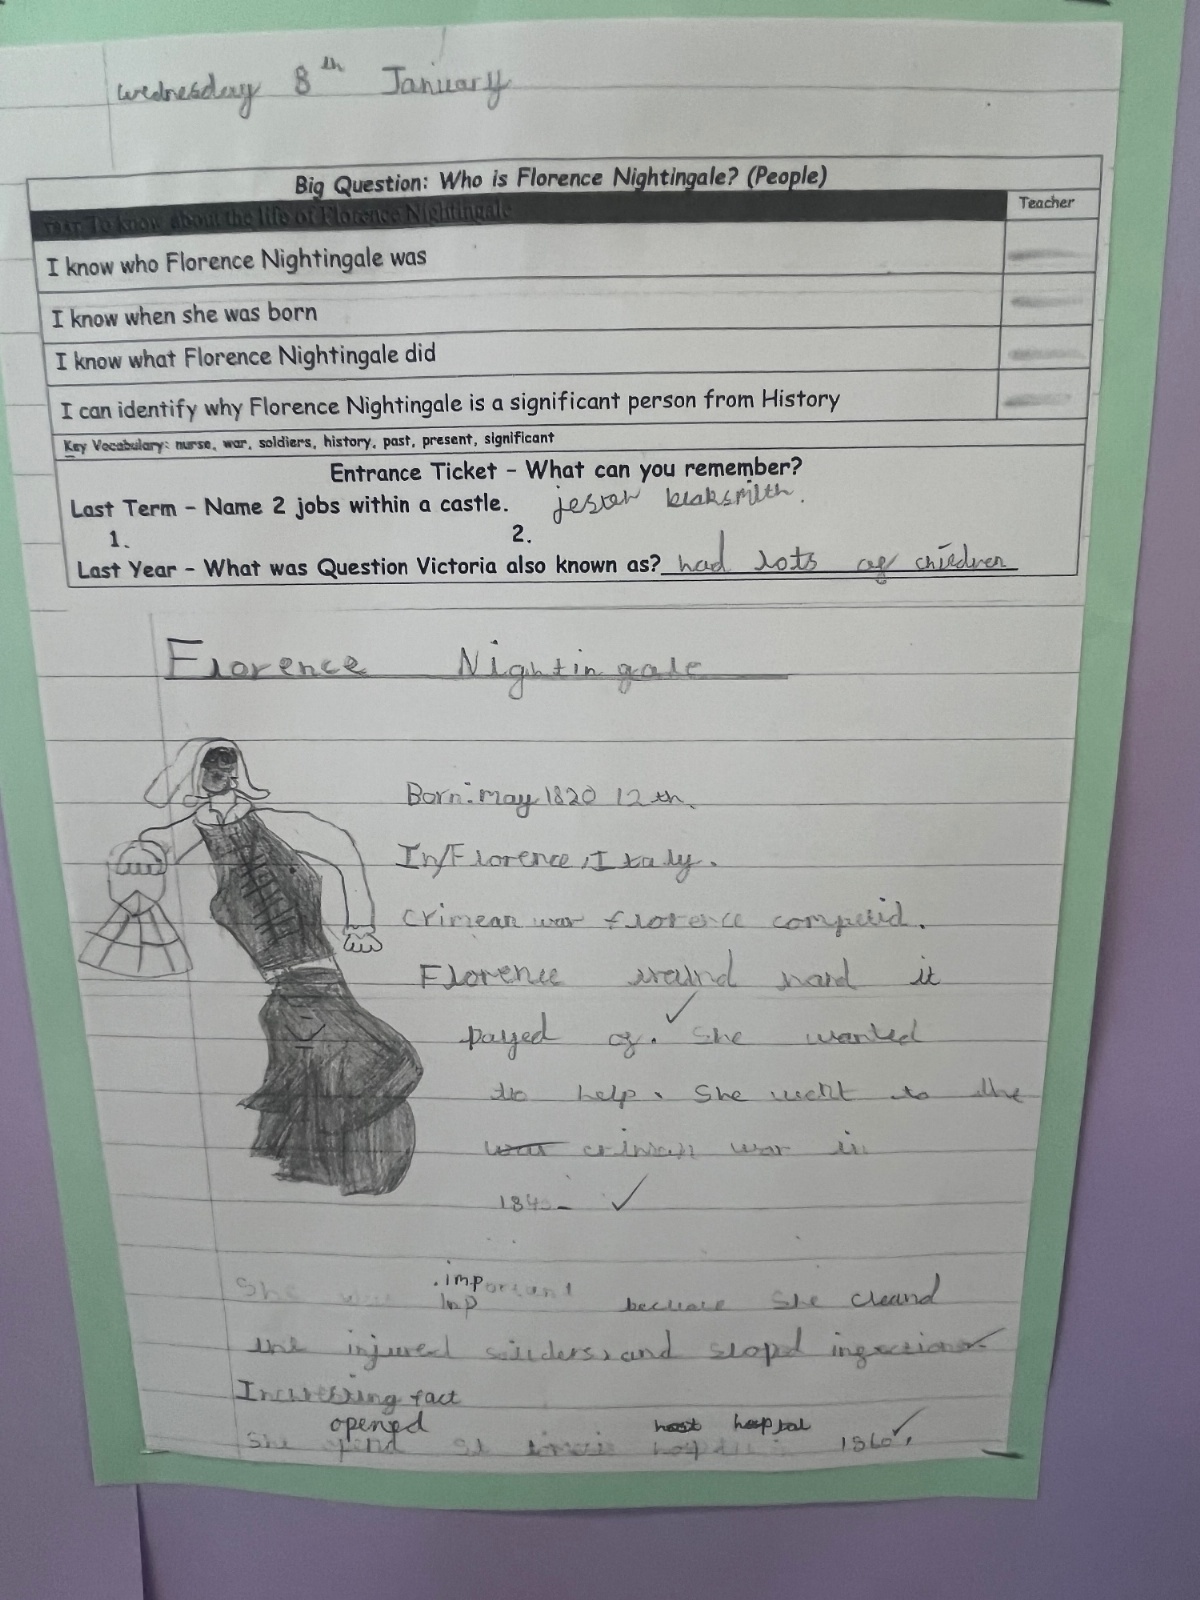 Wednesday 8th January
Big Question: Who is Florence Nightingale? (People)
To know about the life of Florence Nightingale
Teacher
I know who Florence Nightingale was
I know when she was born
I know what Florence Nightingale did
I can identify why Florence Nightingale is a significant person from History
Key Vocabulary: nurse, war, soldiers, history, past, present, significant
Entrance Ticket - What can you remember?
Last Term - Name 2 jobs within a castle. jester blaksmith.
1. 2.
Last Year - What was Question Victoria also known as? had lots of children
Florence Nightingale
Born: may 1820 12th.
In/Florence, Italy.
Crimean war florence
Florence hard it
payed of. She wanted
to help. She went to the
war war in
She important
imp because she cleand
the injured and stoped
fact
opened host hosptal
She 1860.